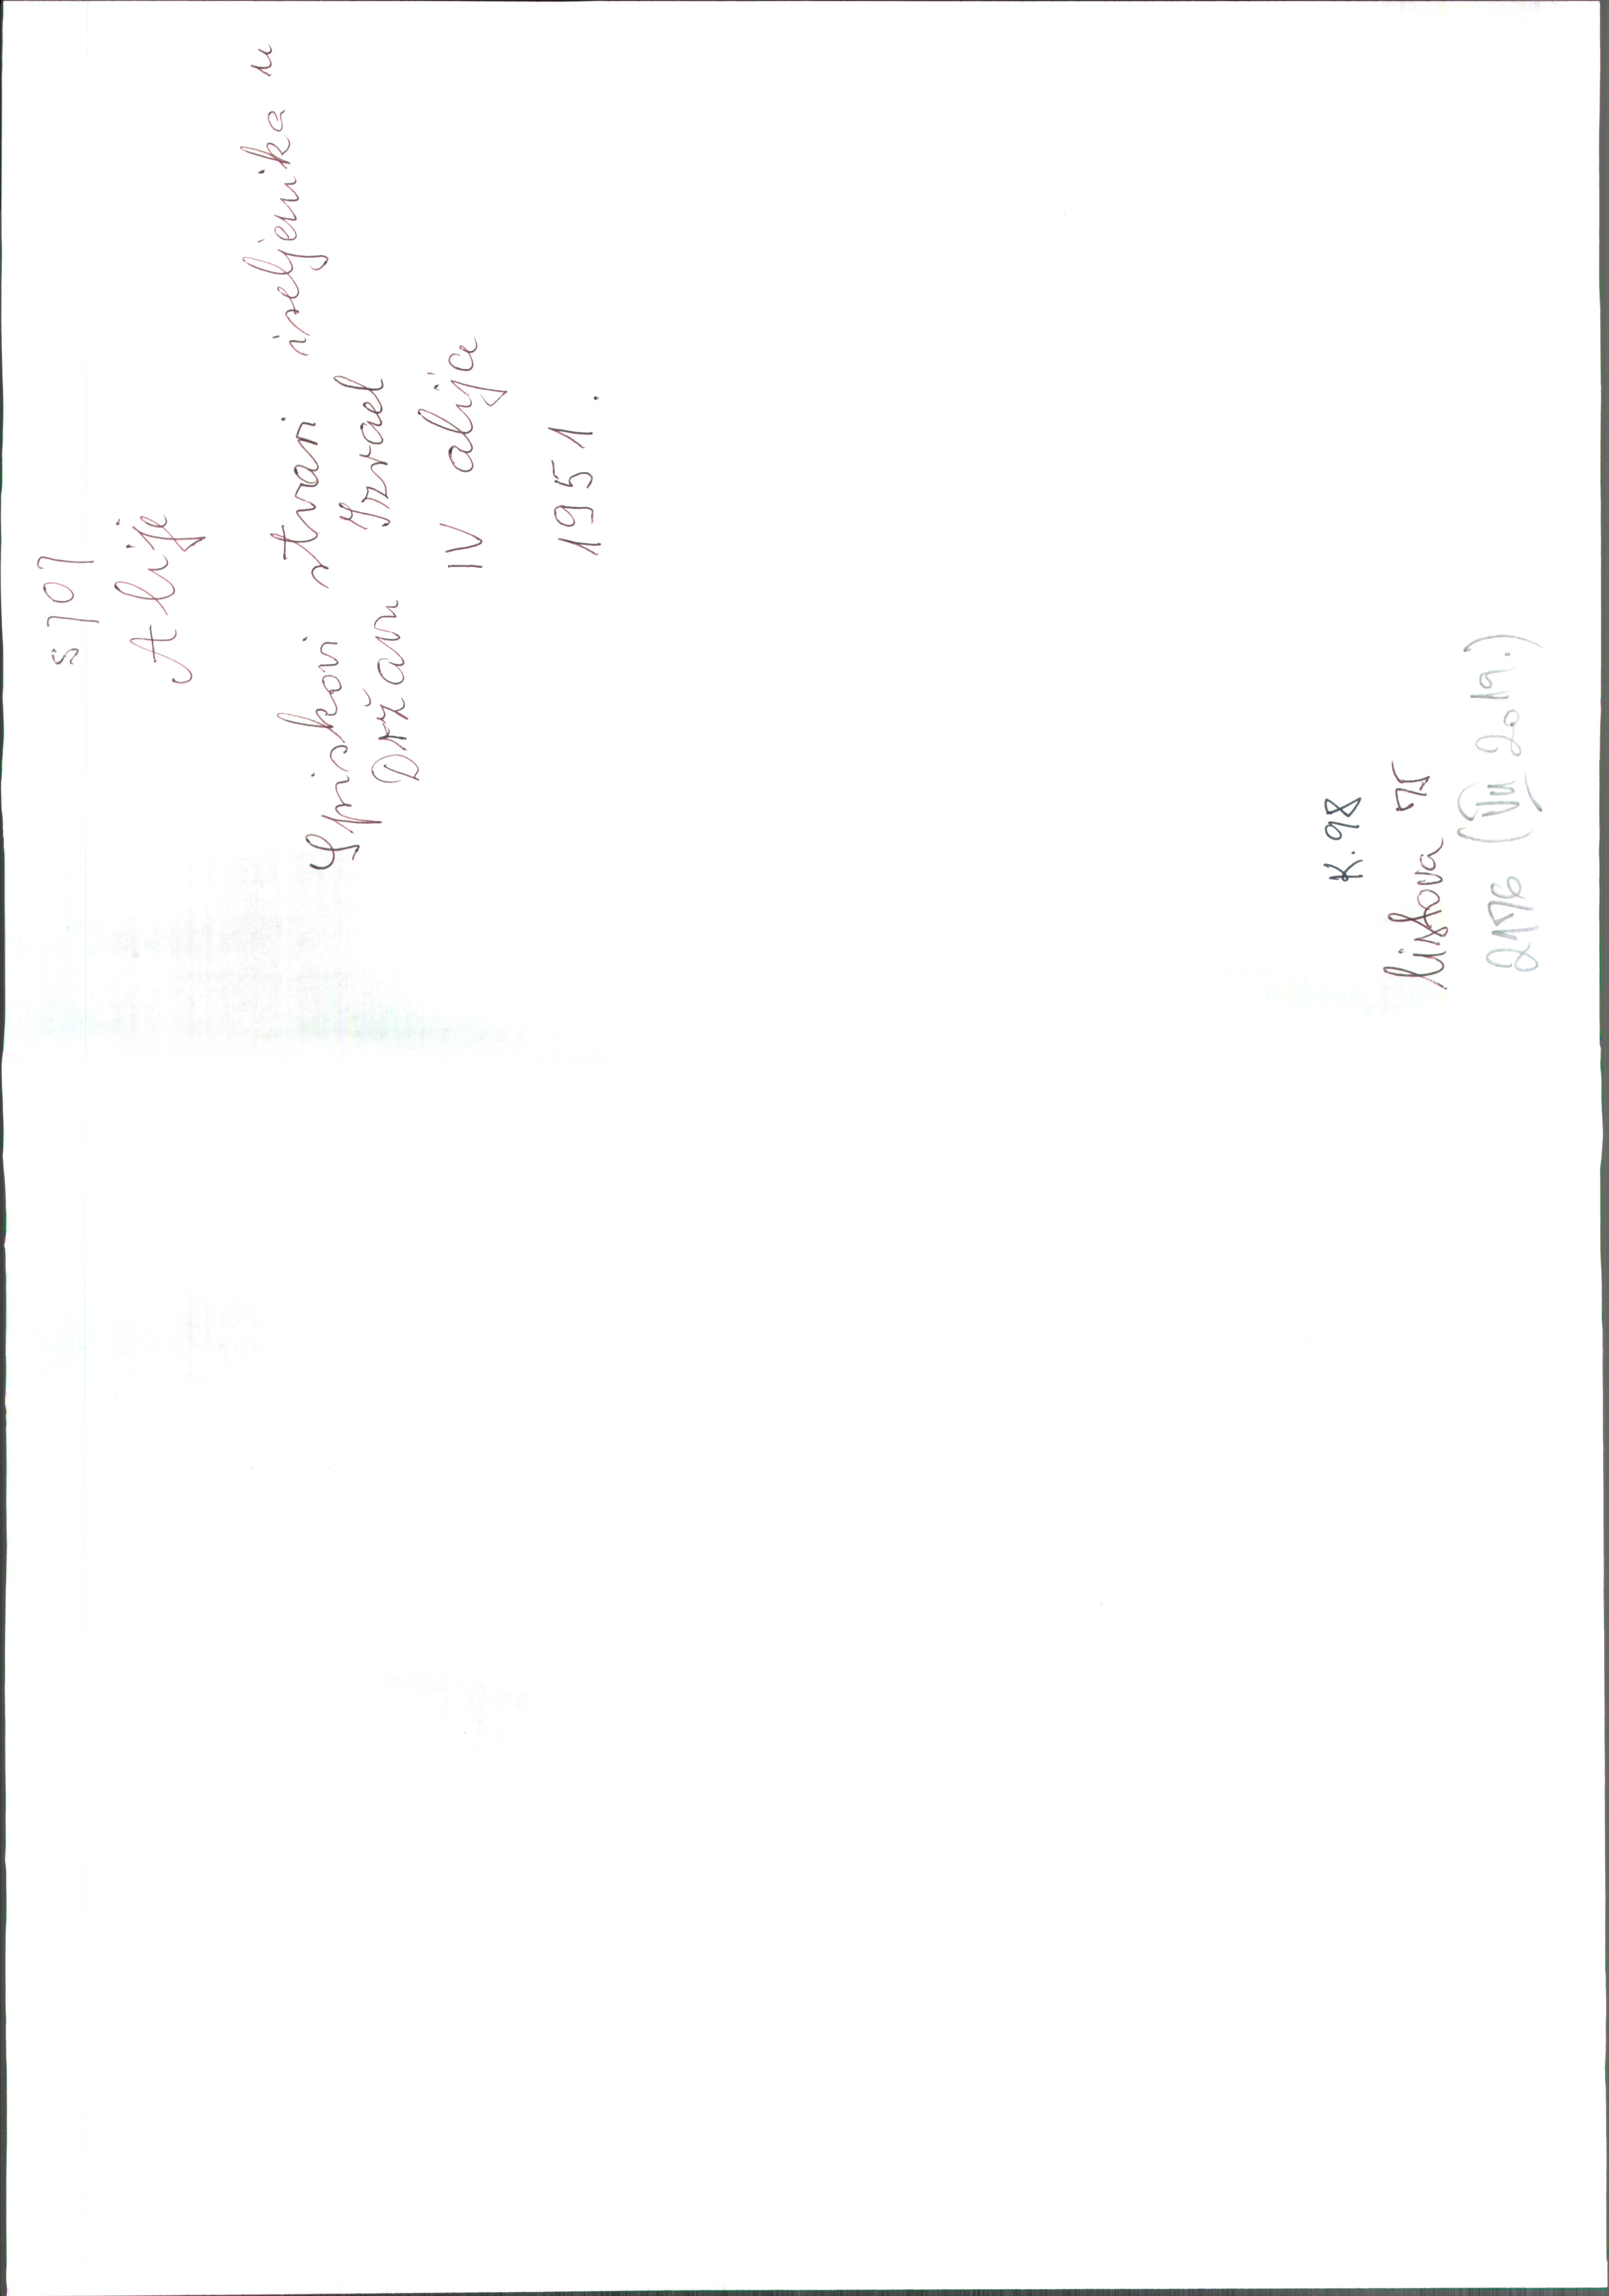 5701
Alije
Spiskovi stvari iseljenika u
Državu Izrael
IV alija
1951.
K.98
listova 75
2176 (VIII 2019.)